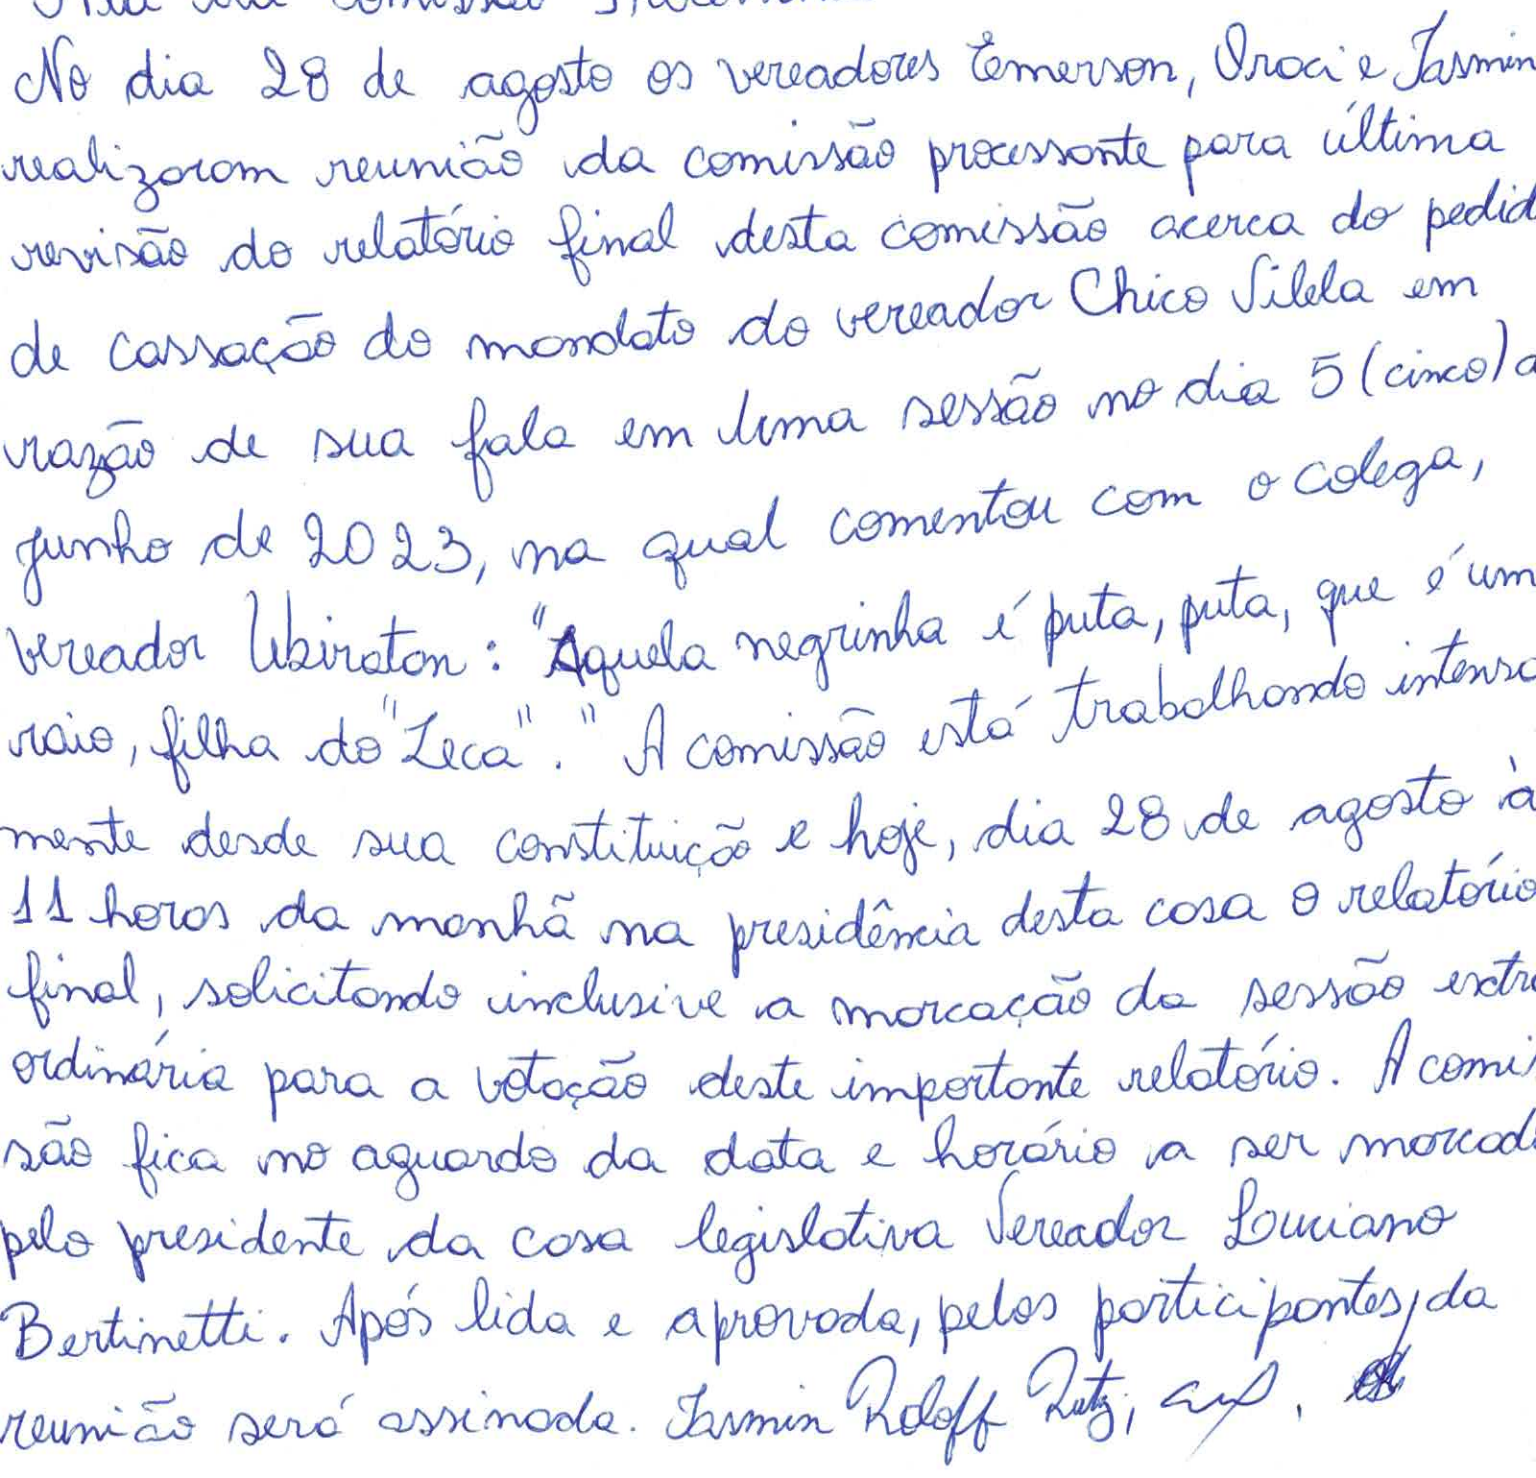 Ata da comissão
No dia 28 de agosto os vereadores Emerson, Oraci e Iasmin
realizaram reunião da comissão processante para última
revisão do relatório final desta comissão acerca do pedid
de cassação do mandato do vereador Chico Vilela em
razão de sua fala em uma sessão no dia 5 (cinco) d
junho de 2023, na qual comentou com o colega,
vereador Ubiratan: "Aquela negrinha é puta, puta, que é um
raio, filha do "Leca"." A comissão está trabalhando intensa
mente desde sua constituição e hoje, dia 28 de agosto à
11 horas da manhã na presidência desta casa o relatório
final, solicitando inclusive a marcação da sessão extra
ordinária para a votação deste importante relatório. A comis
são fica no aguardo da data e horário a ser marcad
pelo presidente da casa legislativa Vereador Luciano
Bertinetti. Após lida e aprovada, pelos participantes, da
reunião será assinada. Iasmin Roloff Rutz,